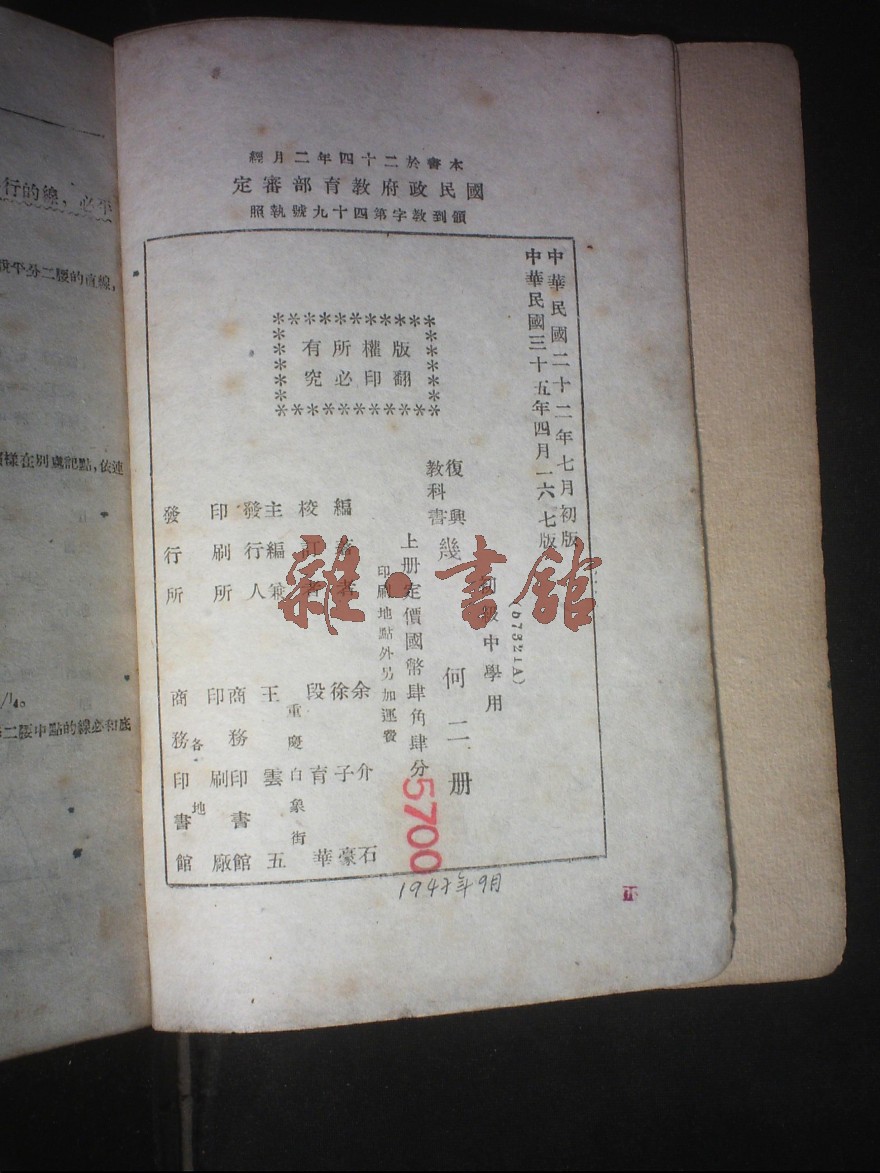 本書於二十四年二月經
國民政府教育部審定
領到教字第四十九號執照
中華民國二十二年七月初版
中華民國三十五年四月一六七版
(57321A)
版權所有
翻印必究
復興
教科書
初級中學用
幾何二册
上册定價國幣肆角肆分
印刷地點外另加運費
編著者 余介石
徐子豪
校訂者 段育華
主編兼
發行人 王雲五
重慶白象街
印刷所 商務印書館
印刷廠
發行所 各地
商務印書館
5700
1947年9月
正
雜·書館
行的線，必平
平分二腰的直線，
樣在別處記點，依連
二腰中點的線必和底